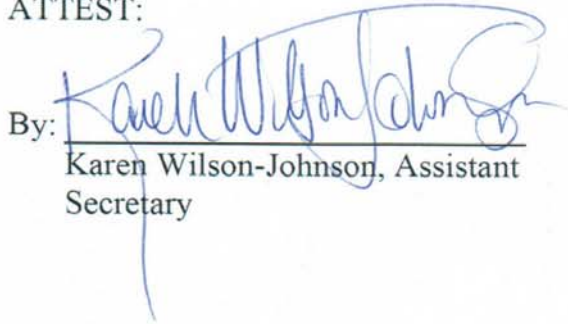 ATTEST:
By: Karen Wilson-Johnson
Karen Wilson-Johnson, Assistant
Secretary